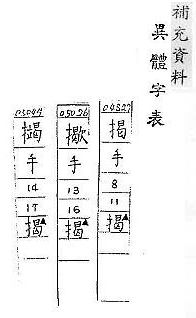 補充資料
異體字表
揭
手
8
11
揭
手
13
16
揭
手
14
17
揭